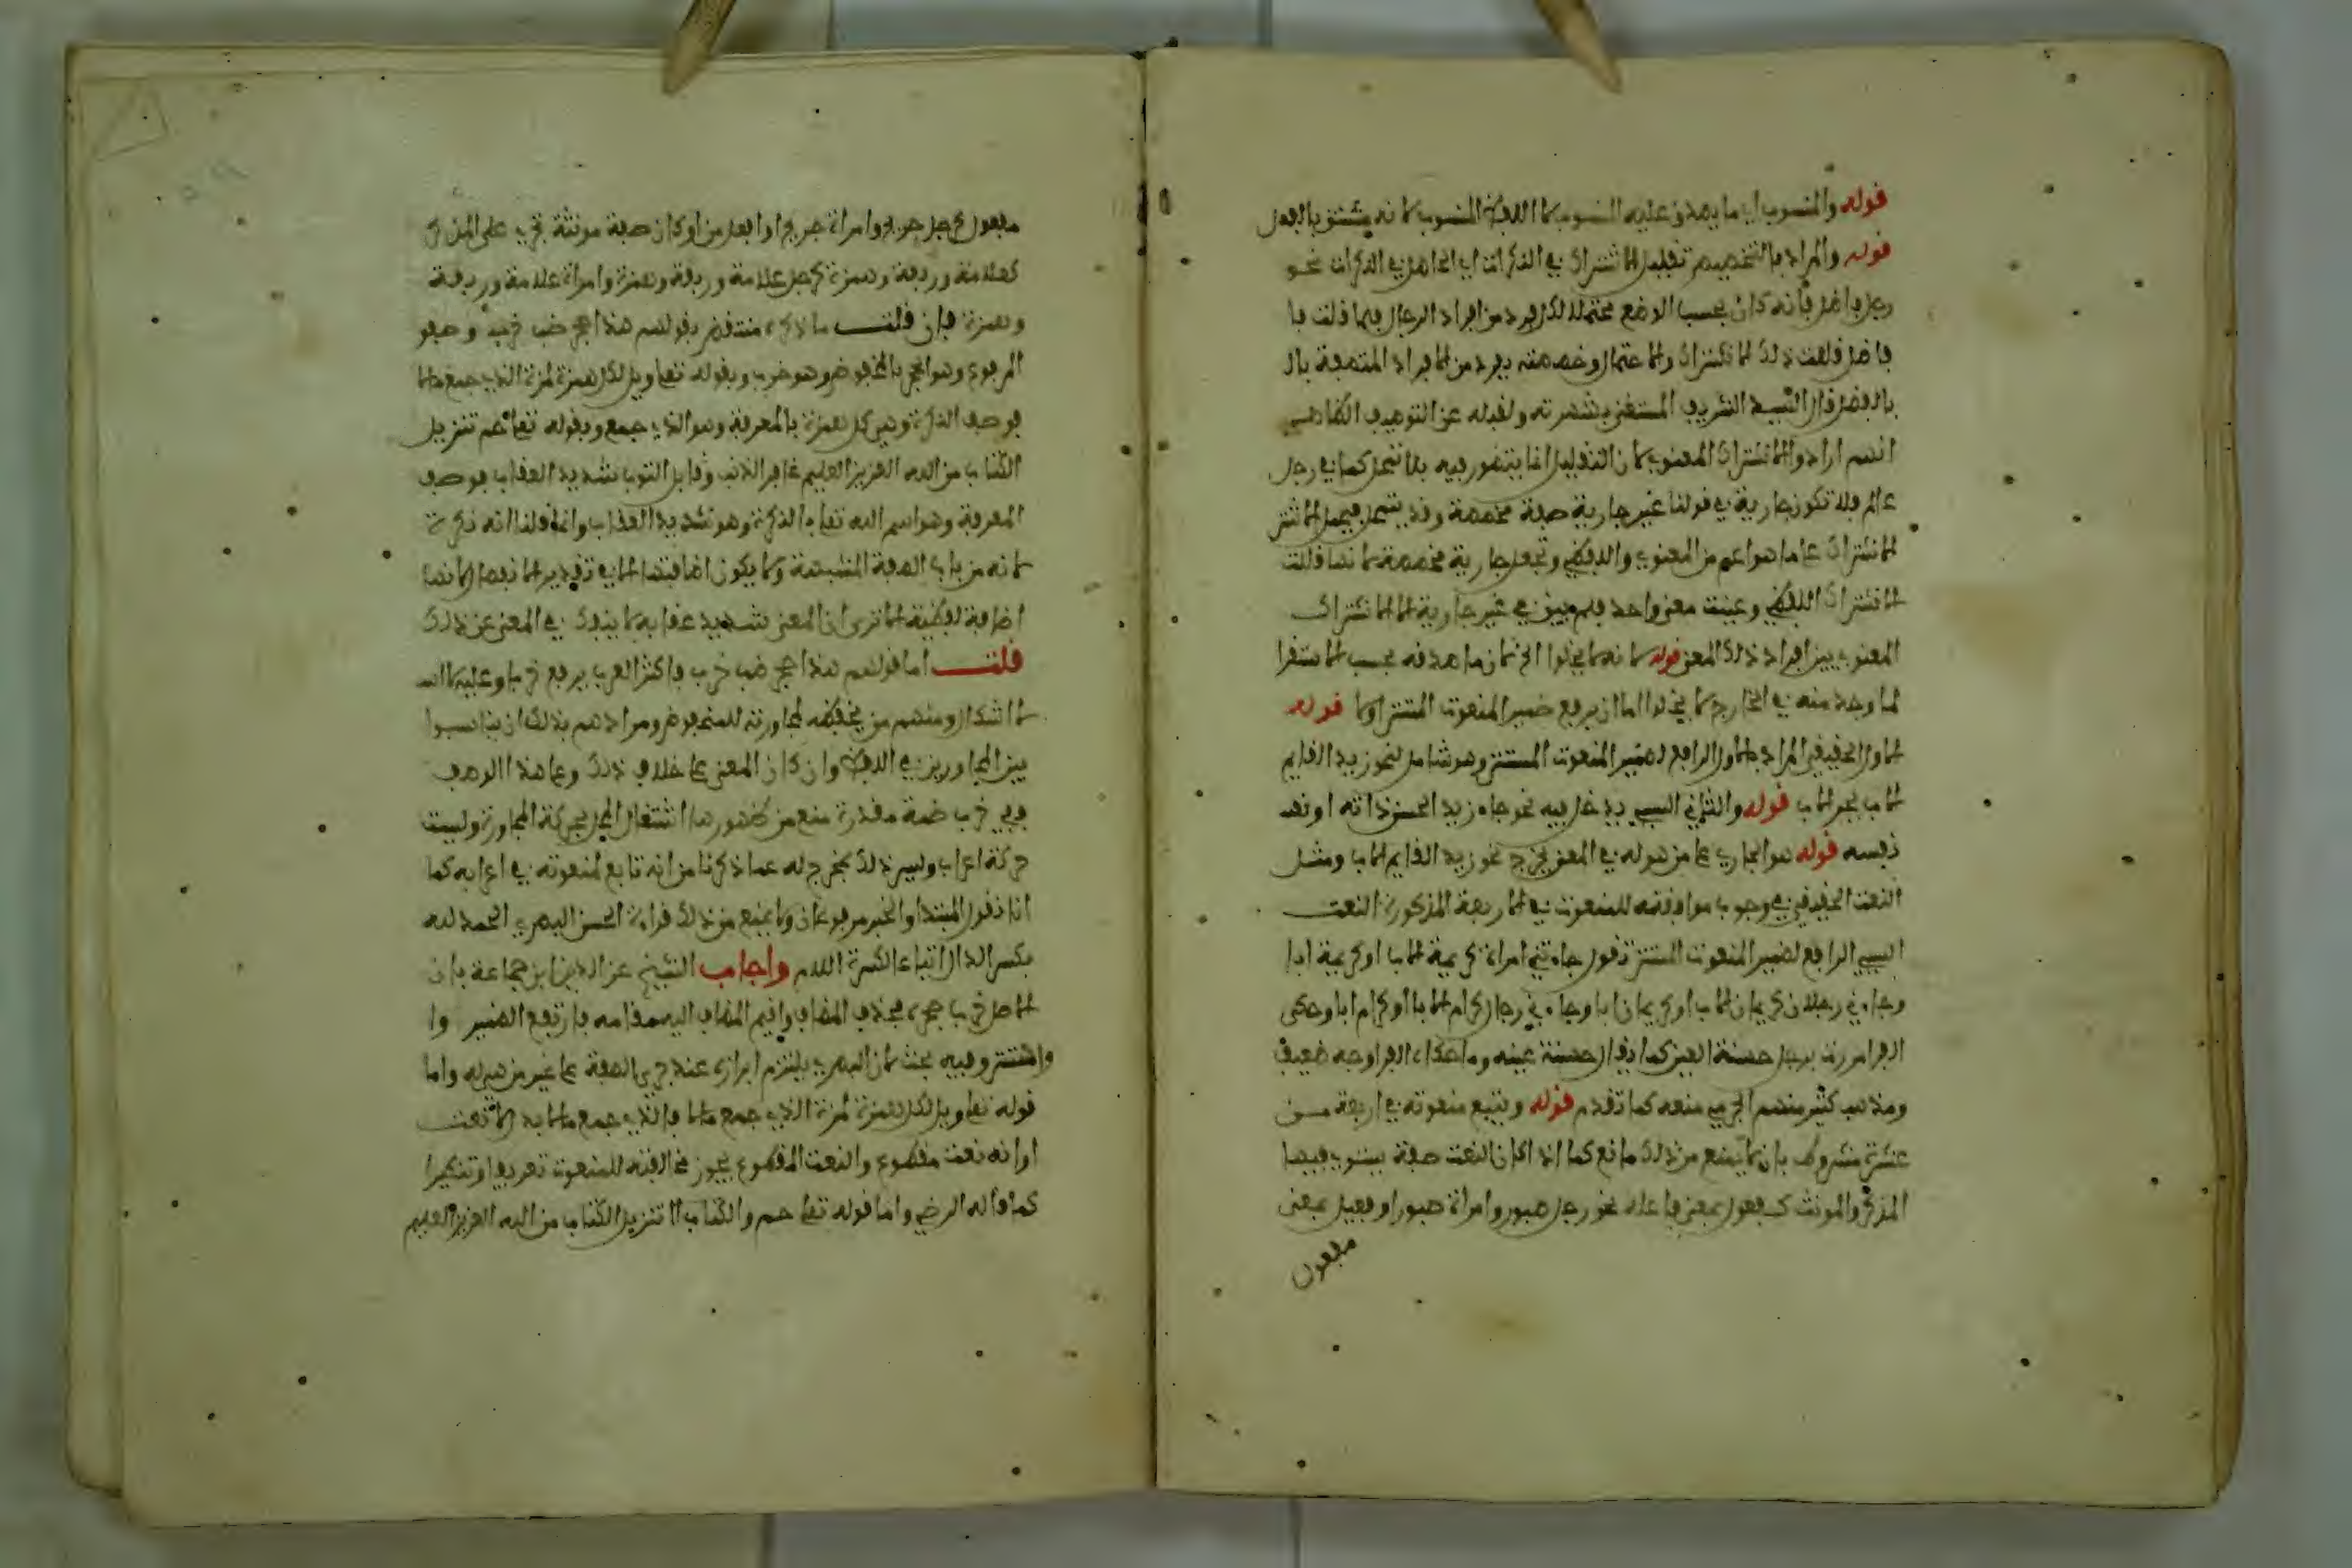 قوله والمنسوب اي ما يصدق عليه المنسوب لا اللفظ المنسوب لانه مشتق بالفعل
قوله والمراد بالتخصيص تقليل الاشتراك في النكرات اي الحاصل في النكرات نحو
رجل فاضل فانه كان بحسب الوضع محتملا لكل فرد من افراد الرجال فلما قلت فا
فاضل قللت ذلك الاشتراك والاحتمال وخصصته بفرد من الافراد المتصفة بال
بالفضل قال السيد الشريف المستغني بشهرته ولقبه عن التوصيف الظاهر
انهم ارادوا الاشتراك المعنوي لان التقليل انما يتصور فيه بلا تمحل كما في رجل
عالم فلا تكون جارية في قولنا عين جارية صفة مخصصة وقد يتمحل فيحمل الاشتر
الاشتراك على ما هو اعم من المعنوي واللفظي وتجعل جارية مخصصة لانها قللت
الاشتراك اللفظي وعينت معنى واحد فلم يبق في عين جارية الا الاشتراك
المعنوي بين افراد ذلك المعنى قوله لانه لا يخلوا الخ لان ما صدقه بحسب الاستقرا
لما وجد منه في الخارج لا يخلوا اما ان يرفع ضمير المنعوت المستتر او لا قوله
الاول الحقيقي المراد بالاول الرافع لضمير المنعوت المستتر وهو شامل لنحو زيد القايم
الاب بجر الاب قوله والثاني السببي يدخل فيه نحو جاء زيد الحسن ذاته او نفسه
نفسه قوله هو الجاري على من هو له في المعنى يخرج نحو زيد القايم الاب ومثل
النعت الحقيقي في وجوب موافقته للمنعوت في الاربعة المذكورة النعت
السببي الرافع لضمير المنعوت المستتر تقول جاءتني امراة كريمة الاب او كريمة ابا
وجاءني رجلان كريمان الاب او كريمان ابا وجاءني رجال كرام الابا او كرام ابا وحكى
الفرا مررت برجل حسنة العين كما يقال حسنة عينه وما حكاه الفرا وجه ضعيف
ومذهب كثير منهم الجرمي منعه كما تقدم قوله ويتبع منعوته في اربعة من
عشرة مشروط بان لا يمنع من ذلك مانع كما اذا كان النعت صفة يستوي فيها
المذكر والمونث كفعول بمعنى فاعل نحو رجل صبور وامراة صبور او فعيل بمعنى
مفعول
مفعول كرجل جريح وامراة جريح او افعل من او كان صفة مونثة تجري على المذكر
كعلامة وربعة وهمزة كرجل علامة وربعة وهمزة وامراة علامة وربعة
وهمزة فان قلت ما ذكره منتقض بقولهم هذا جحر ضب خرب وصفو
المرفوع وهو الجحر بالمخفوض وهو خرب وبقوله تعلى ويل لكل همزة لمزة الذي جمع مالا
فوصف النكرة وهي كل همزة بالمعرفة وهو الذي جمع وبقوله تعلى حم تنزيل
الكتاب من الله العزيز العليم غافر الذنب وقابل التوب شديد العقاب فوصف
المعرفة وهو اسم الله تعلى بالنكرة وهو شديد العقاب وانما قلنا انه نكرة
لانه من باب الصفة المشبهة ولا يكون اضافتها الا في تقدير الانفصال لانها
اضافة لفظية الا ترى ان المعنى شديد عقابه لا ينفك في المعنى عن ذلك
قلت اما قولهم هذا جحر ضب خرب فاكثر العرب يرفع خربا وعليه
لا اشكال ومنهم من يخفضه لمجاورته للمخفوض ومرادهم بذلك ان يناسبوا
بين المجاورين في اللفظ وان كان المعنى على خلاف ذلك وعلى هذا الوجه
ففي خرب ضمة مقدرة منع من ظهورها اشتغال المحل بحركة المجاورة وليست
حركة اعراب وليس ذلك بمخرج له عما ذكرنا من انه تابع لمنعوته في اعرابه كما
انا نقول المبتدا والخبر مرفوعان ولا يمنع من ذلك قراءة الحسن البصري الحمد لله
بكسر الدال اتباعا لكسرة اللام واجاب الشيخ عز الدين ابن جماعة بان
الاصل خرب جحره فحذف المضاف واقيم المضاف اليه مقامه فارتفع الضمير وا
واستتر وفيه بحث لان البصري يلتزم ابرازه عند جري الصفة على غير من هي له واما
قوله تعلى ويل لكل همزة لمزة الذي جمع مالا فالذي جمع مالا بدل لا نعت
او انه نعت مقطوع والنعت المقطوع يجوز مخالفته للمنعوت تعريفا وتنكيرا
كما قاله الرضي واما قوله تعلى حم والكتاب الا تنزيل الكتاب من الله العزيز العليم